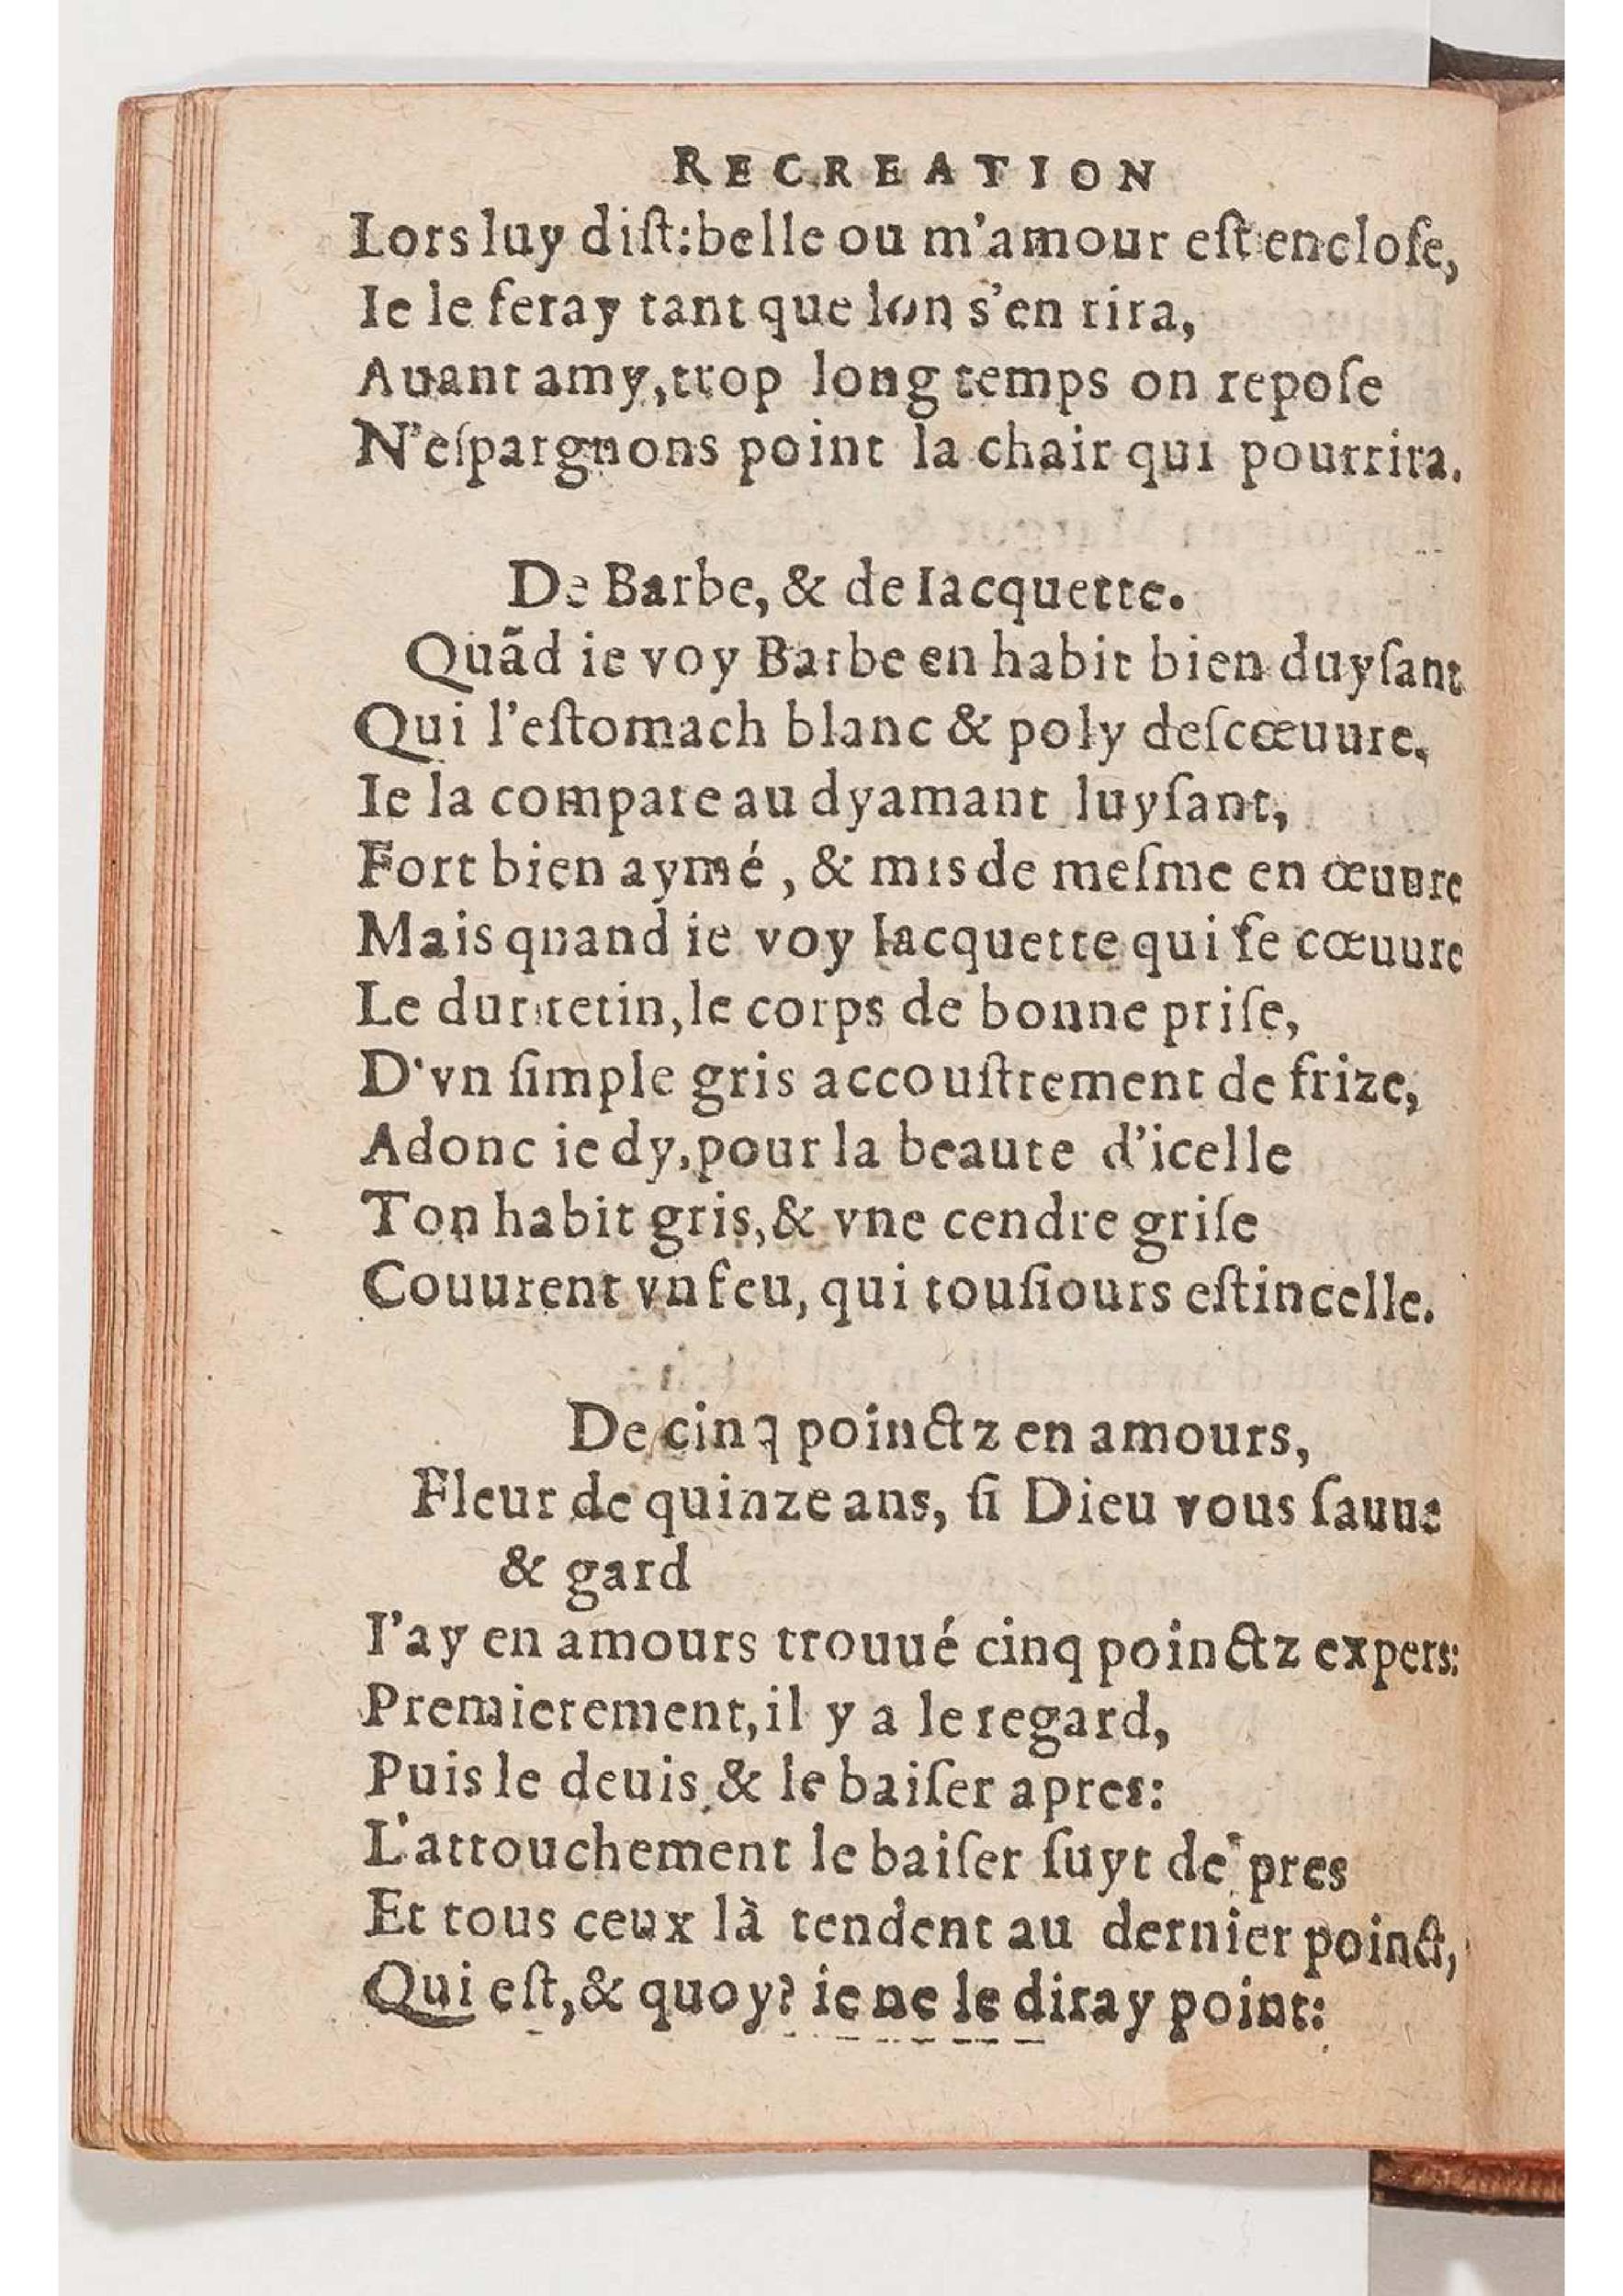 RECREATION
Lors luy diſt: belle ou m'amour eſt encloſe,
Ie le feray tant que lon s'en rira,
Auant amy, trop long temps on repoſe
N'eſpargnons point la chair qui pourrira.
De Barbe, & de Iacquette.
Quãd ie voy Barbe en habit bien duyſant
Qui l'eſtomach blanc & poly deſcœuure,
Ie la compare au dyamant luyſant,
Fort bien aymé, & mis de meſme en œuure
Mais quand ie voy Iacquette qui ſe cœuure
Le dur tetin, le corps de bonne priſe,
D'vn ſimple gris accouſtrement de frize,
Adonc ie dy, pour la beaute d'icelle
Ton habit gris, & vne cendre griſe
Couurent vn feu, qui touſiours eſtincelle.
De cinq poinctz en amours,
Fleur de quinze ans, ſi Dieu vous ſauue
& gard
I'ay en amours trouué cinq poinctz expers:
Premierement, il y a le regard,
Puis le deuis & le baiſer apres:
L'attouchement le baiſer ſuyt de pres
Et tous ceux là tendent au dernier poinct,
Qui eſt, & quoy? ie ne le diray point: